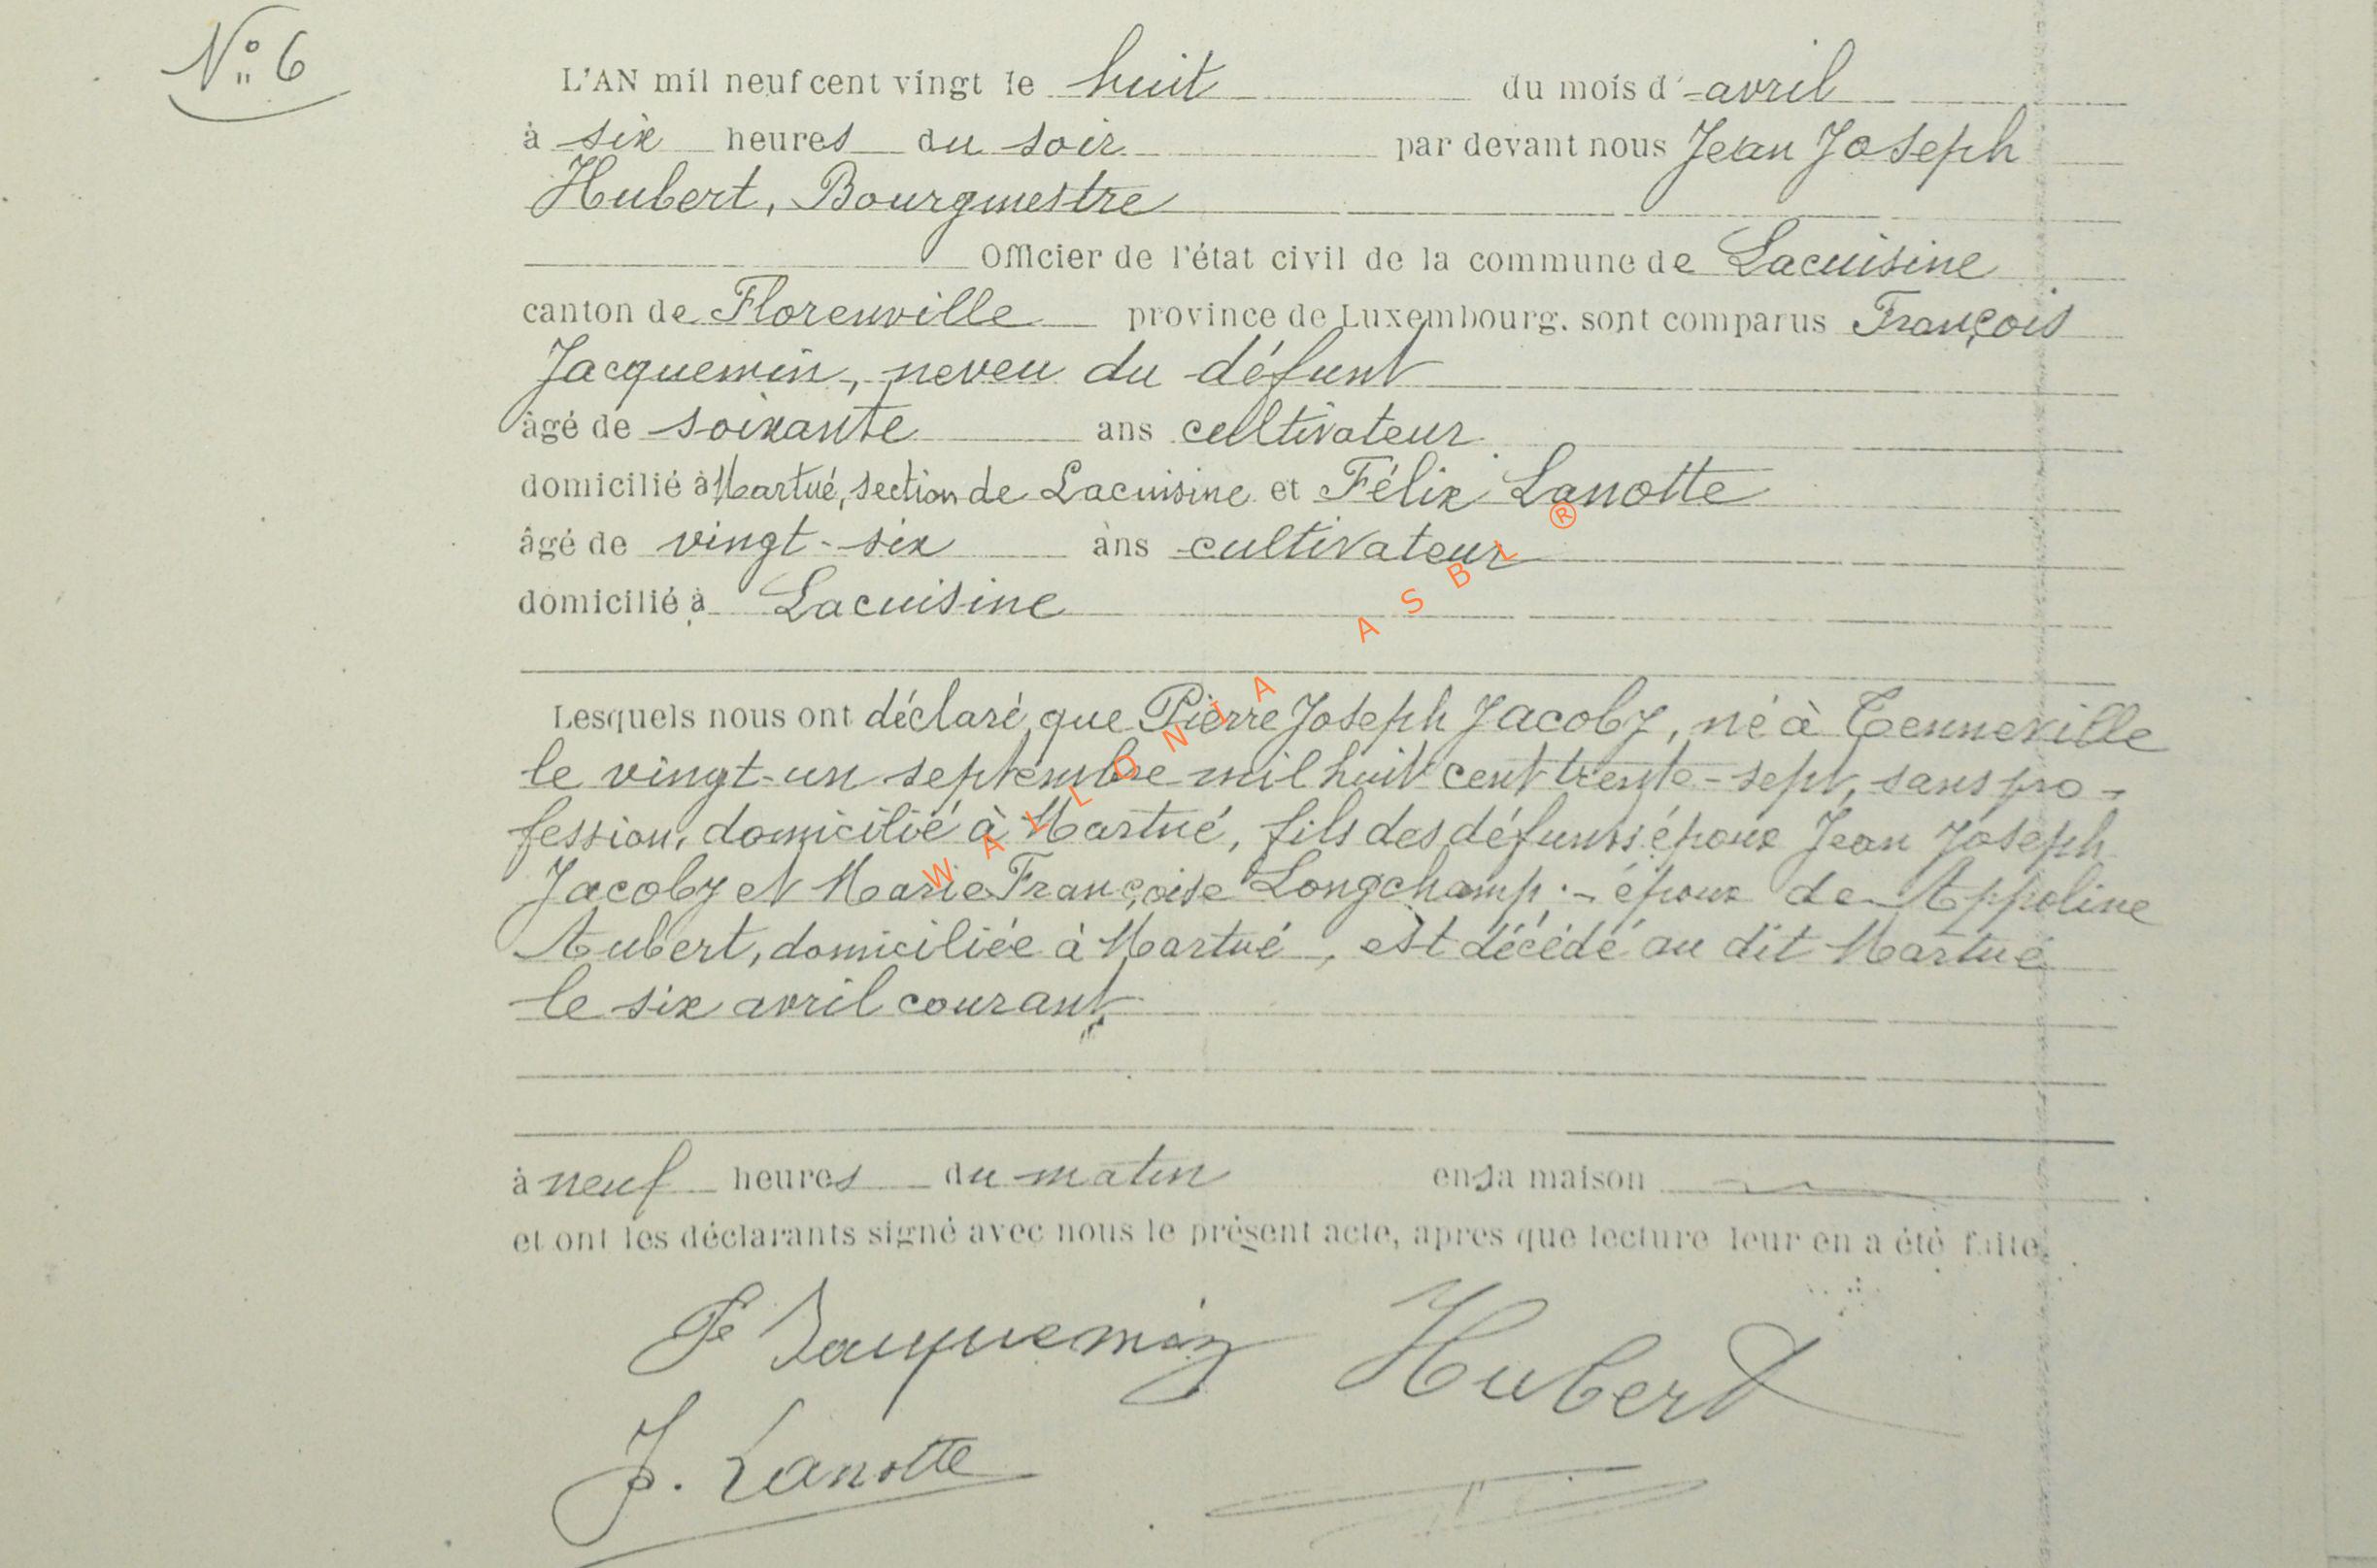 N° 6
L'AN mil neuf cent vingt le huit du mois d'avril
à six heures du soir par devant nous Jean Joseph
Hubert, Bourgmestre
Officier de l'état civil de la commune de Lacuisine
canton de Florenville province de Luxembourg. sont comparus François
Jacquemin, neveu du défunt
âgé de soixante ans cultivateur
domicilié à Martué, section de Lacuisine et Félix Lanotte
âgé de vingt-six ans cultivateur
domicilié à Lacuisine
Lesquels nous ont déclaré que Pierre Joseph Jacoby, né à Tenneville
le vingt-un septembre mil huit cent trente-sept, sans pro-
fession, domicilié à Martué, fils des défunts époux Jean Joseph
Jacoby et Marie Françoise Longchamp.- époux de Appoline
Aubert, domiciliée à Martué, est décédé au dit Martué
le six avril courant
à neuf heures du matin en sa maison
et ont les déclarants signé avec nous le présent acte, apres que lecture leur en a été faite.
F Jacquemin Hubert
F. Lanotte
WALLONIA ASBL ®